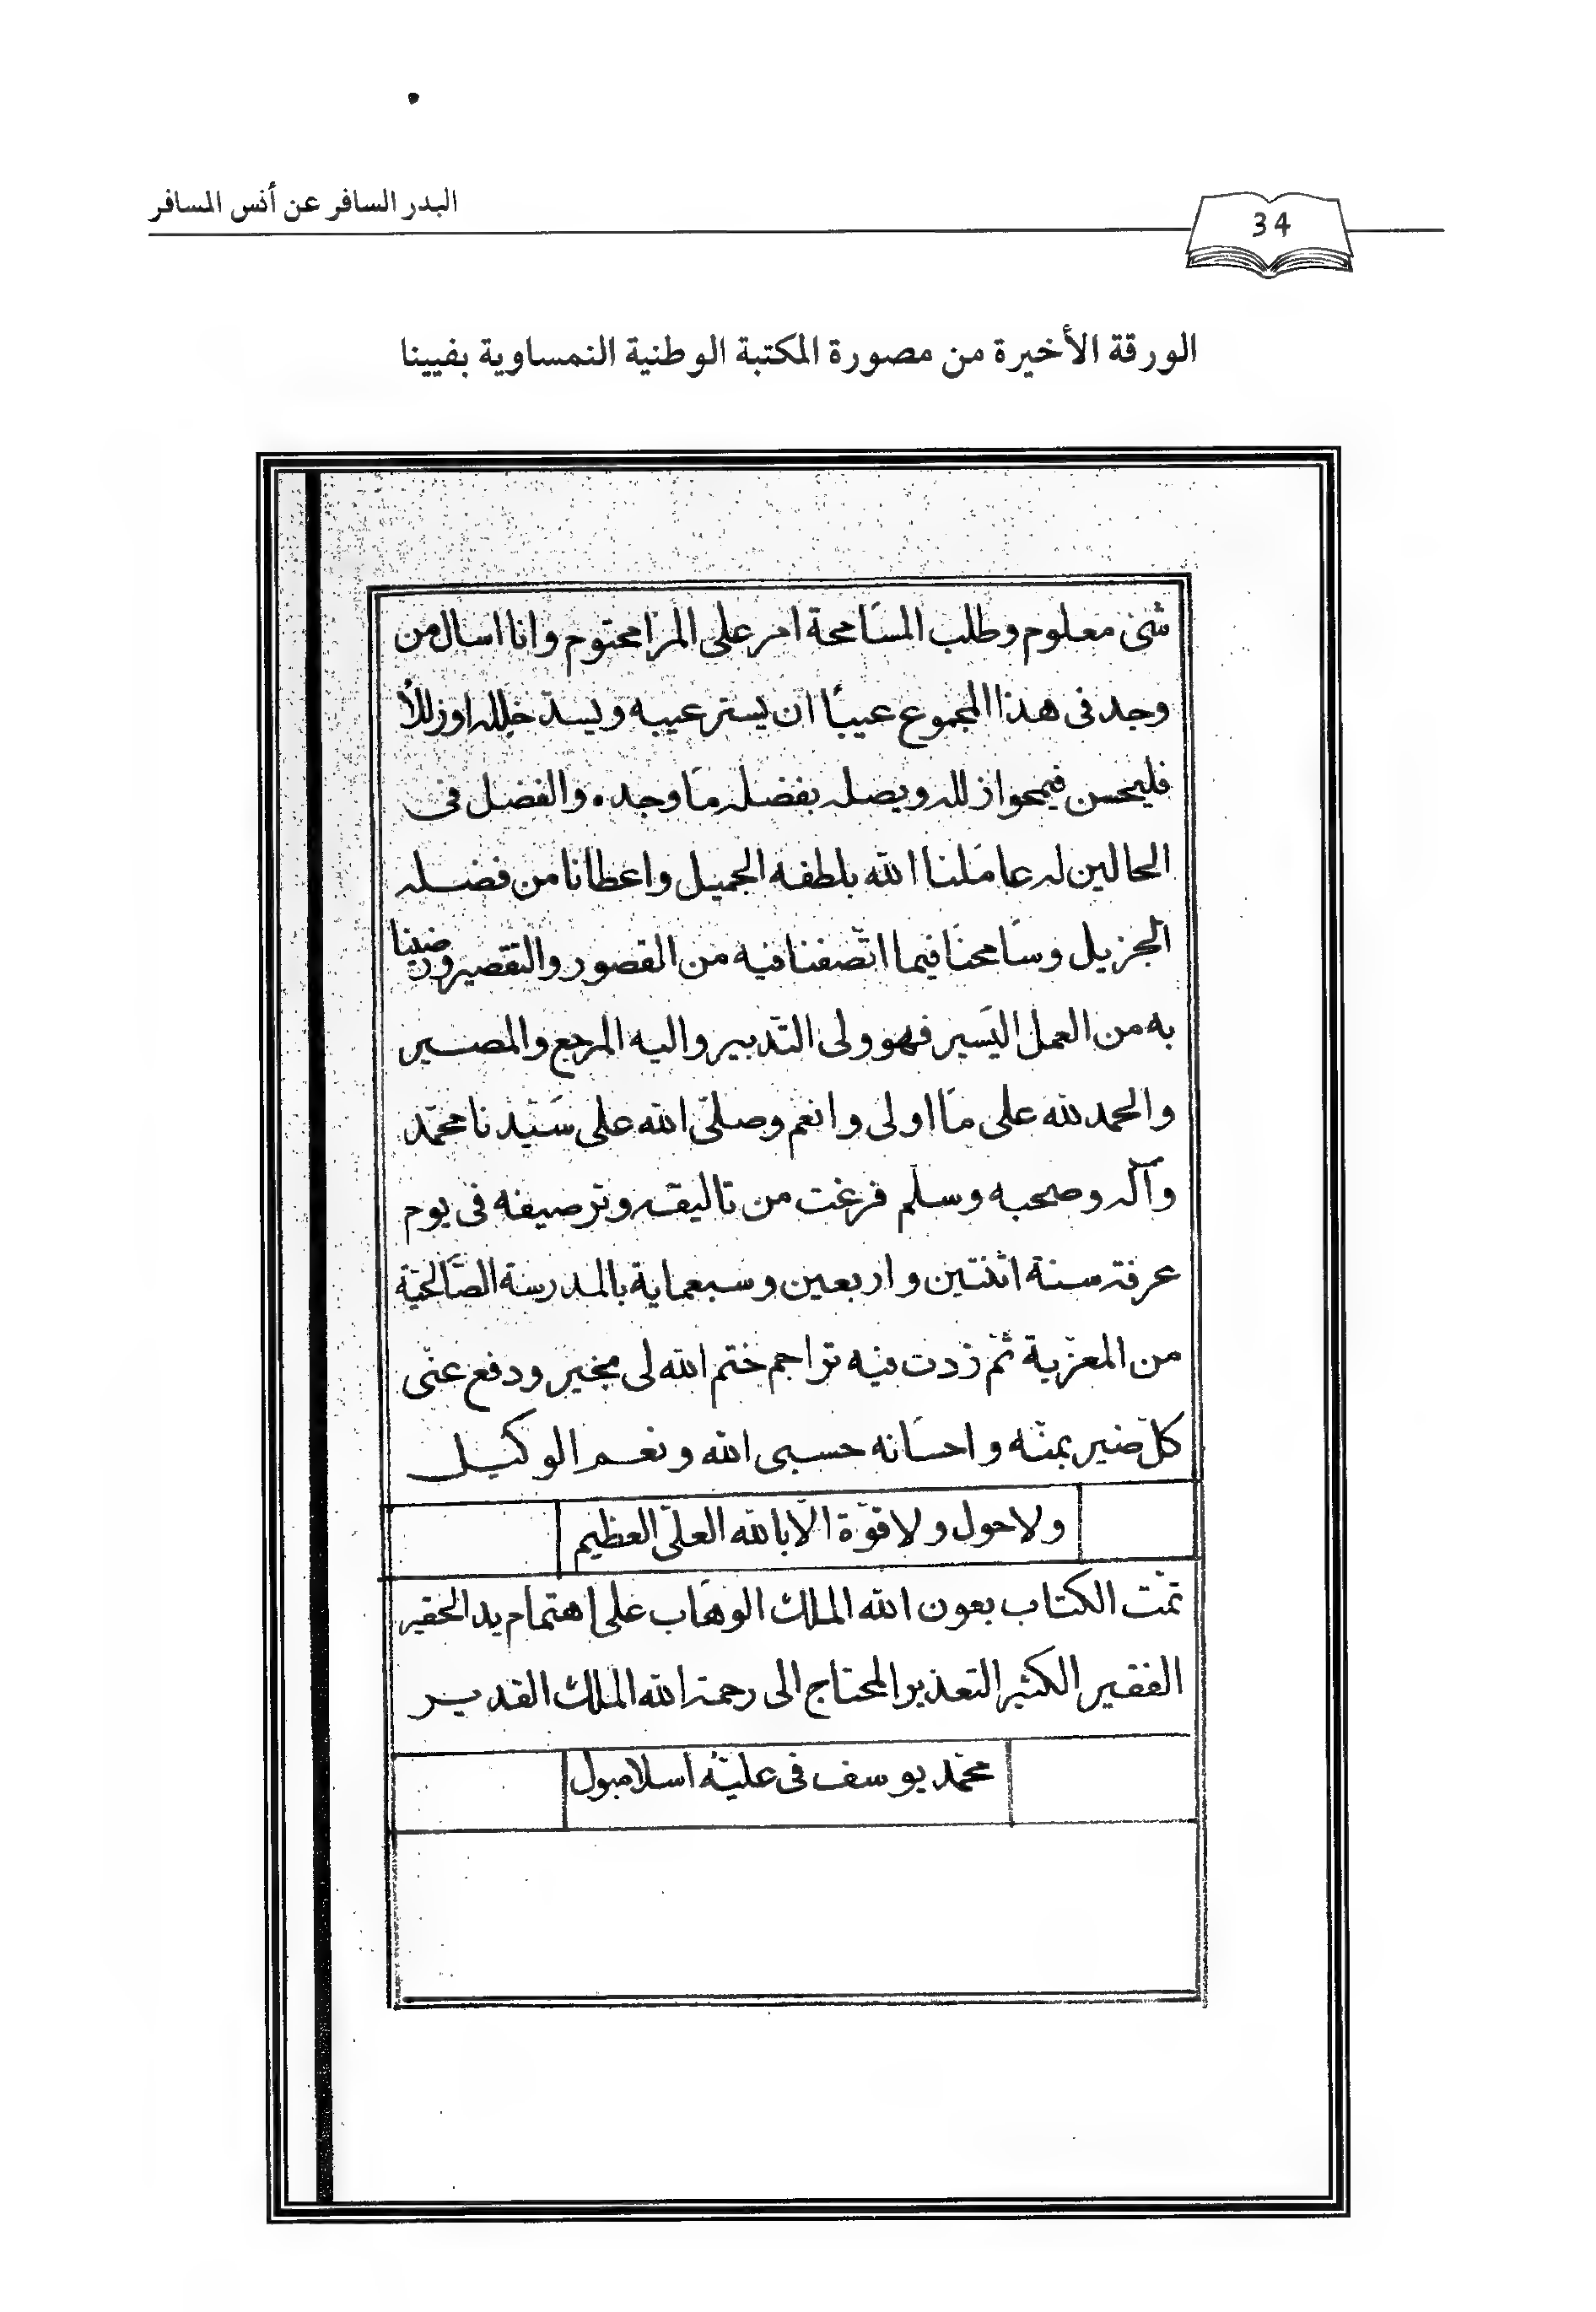 البدر السافر عن أنس المسافر
34
الورقة الأخيرة من مصورة المكتبة الوطنية النمساوية بفيينا
شئ معلوم وطلب المسَامحة امر على المرٔ محتوم وانا اسال من
وجد فى هذا المجموع عيبًا ان يستر عيبه ويسدّ خلله او زللاً
فليحسن فيمحو از لله ويصله بفضله مَا وجده والفضل فى
الحالين له عاملنا الله بلطفه الجميل واعطانا من فضله
الجزيل وسَامحنَا فيما اتّصفنا فيه من القصور والتقصير ورضينا
به من العمل اليَسير فهو ولى التّدبير واليه المرجع والمصير
والحمد لله على مَا اولى وانعم وصلىّ الله على سَيّدنا محمّد
وآله وصحبه وسلم فرغت من تاليفه وترصيفه فى يوم
عرفة سنة اثنتين واربعين وسبعماية بالمدرسة الصَّالحيّة
من المعزّية ثمّ زدت فيه تراجم ختم الله لى بخير ودفع عنّى
كلّ ضير بمنّه واحسَانه حسبى الله ونعم الوكيل
ولا حول ولا قوّة الّا بالله العلىّ العظيم
تمّت الكتاب بعون الله الملك الوهّاب على اهتمام يد الحقير
الفقير الكثير التعذير المحتاج الى رحمة الله الملك القدير
محمّد يوسف فى عليّه اسلامبول